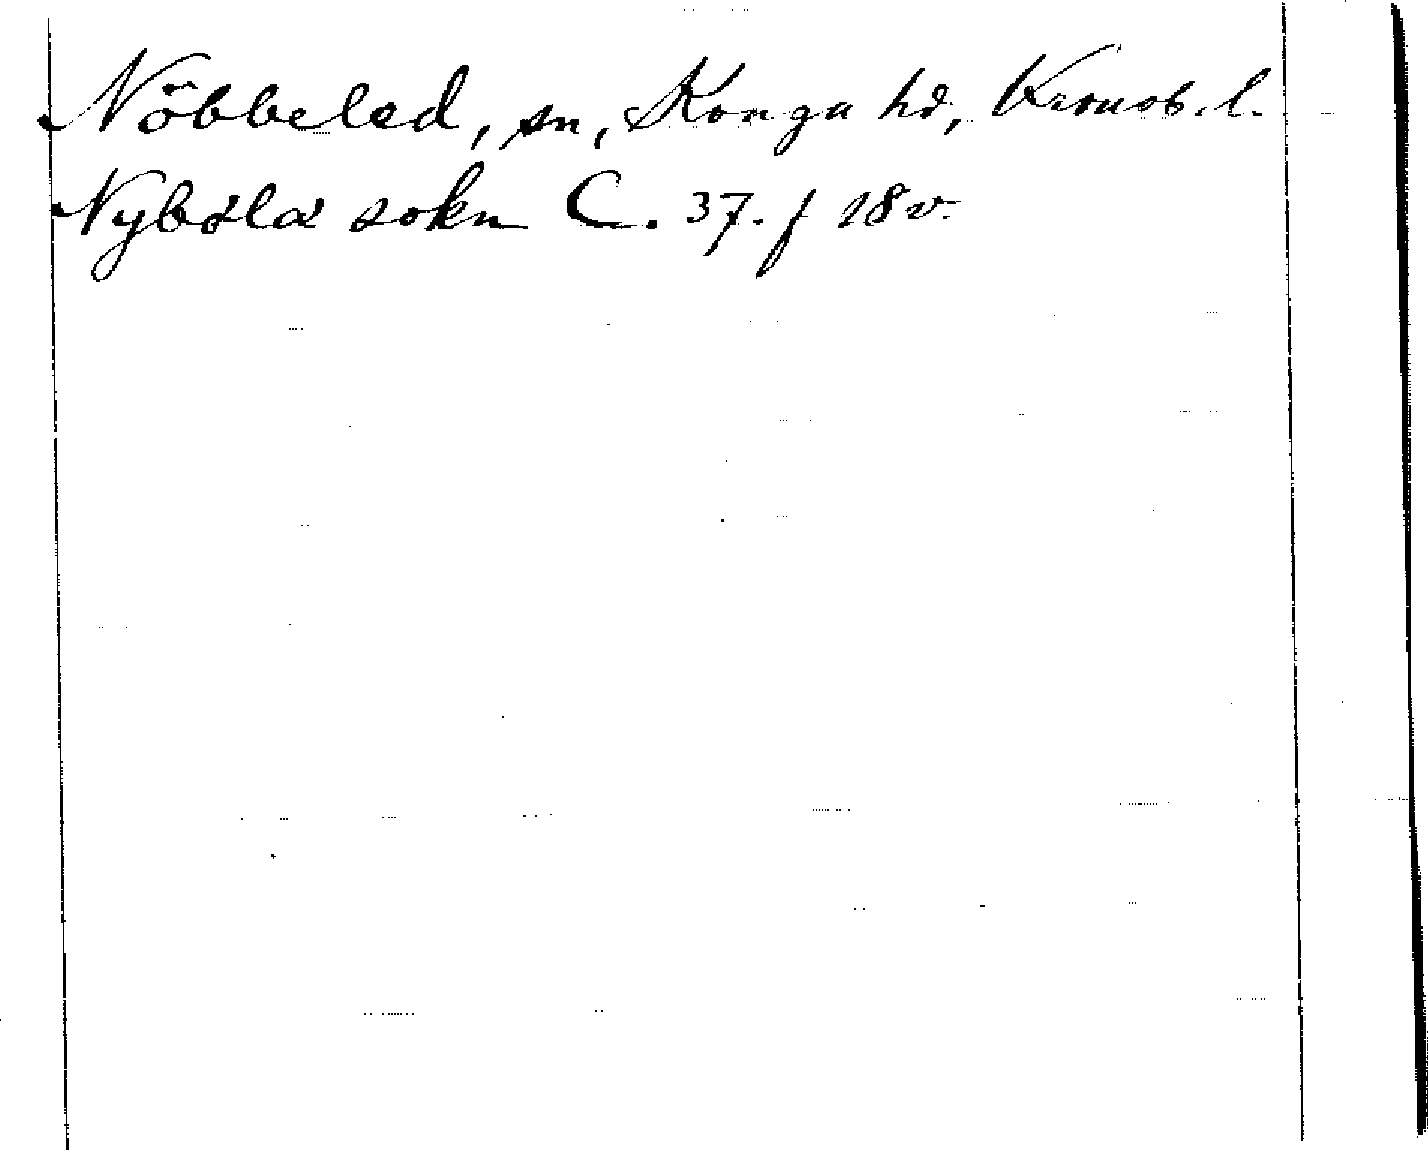 Nöbbeled, sn, Konga hd, Kronob. l.
Nybøla sokn C. 37. f 18 v.